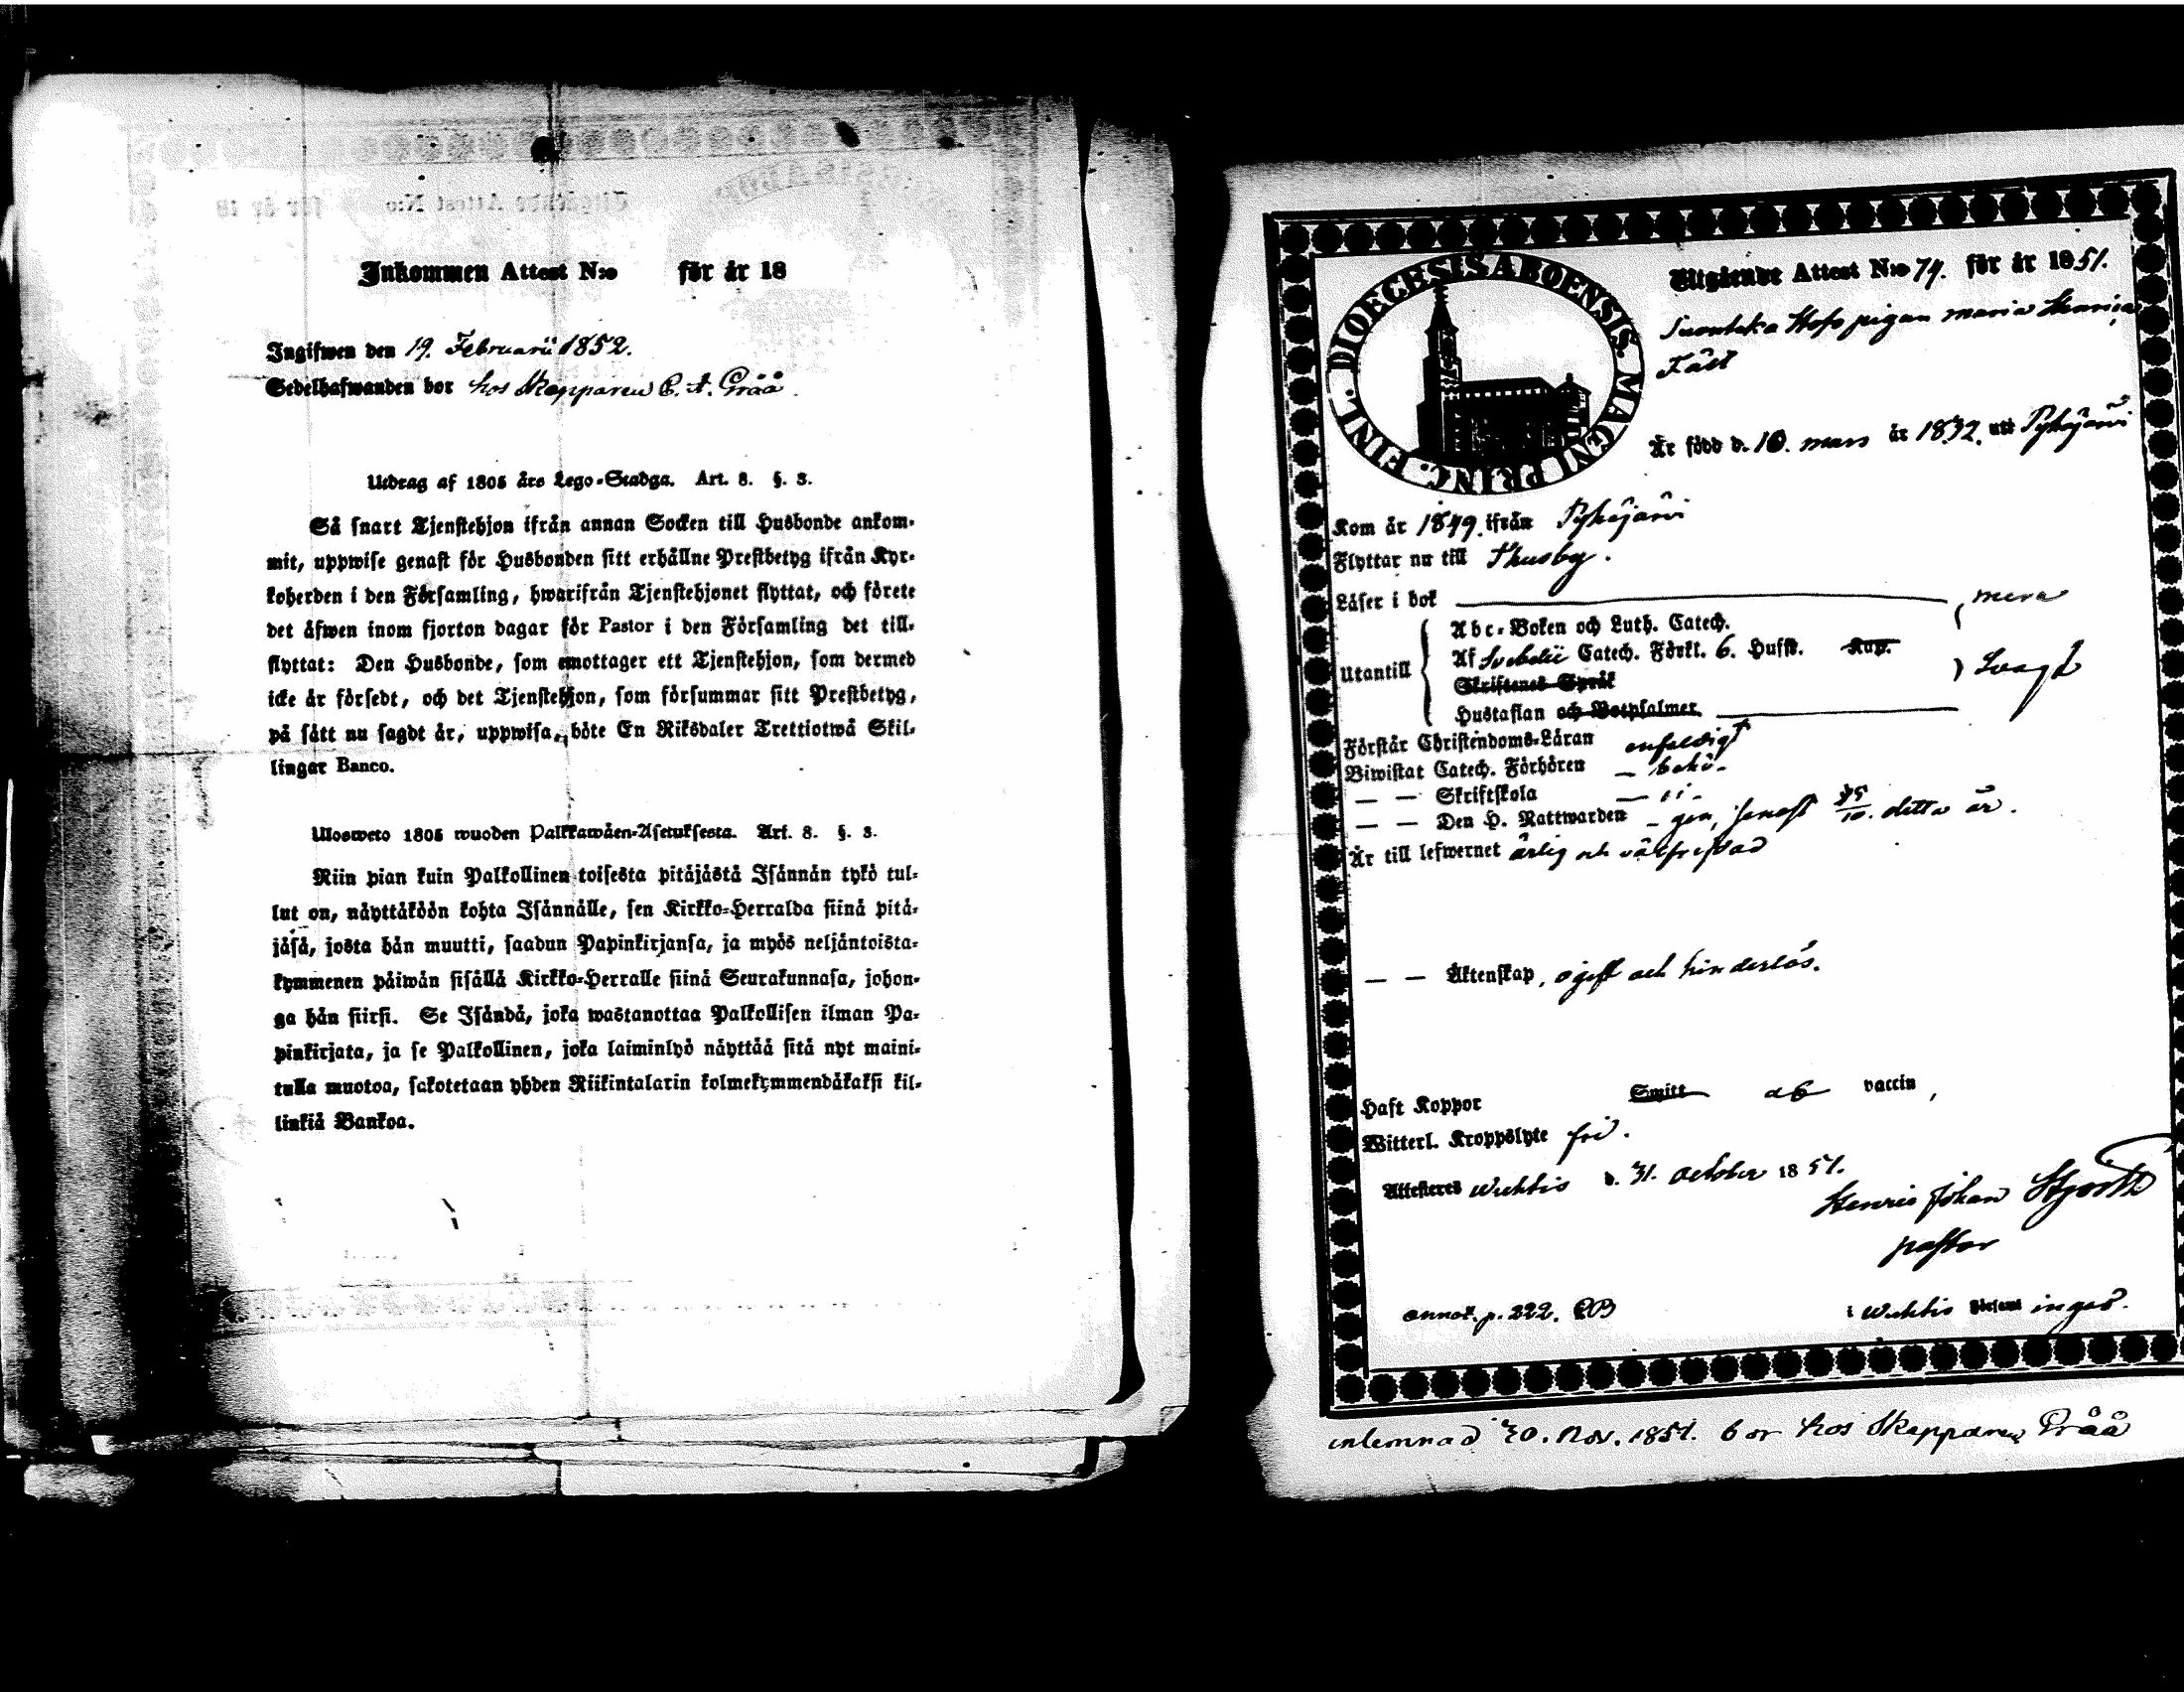 Inkommen Attest N:o för år 18
Ingifwen den 19. Februarii 1852.
Sedelhafwanden bor hos Skepparen C. A. Gråå.
Utdrag af 1805 års Lego-Stadga. Art. 8. §. 3.
Så snart Tjenstehjon ifrån annan Socken till Husbonde ankom-
mit, uppwise genast för Husbonden sitt erhållne Prestbetyg ifrån Kyr-
koherden i den Församling, hwarifrån Tjenstehjonet flyttat, och förete
det åfwen inom fjorton dagar för Pastor i den Församling det till-
flyttat: Den Husbonde, som emottager ett Tjenstehjon, som dermed
icke år försedt, och det Tjenstehjon, som försummar sitt Prestbetyg,
på sått nu sagdt år, uppwisa, böte En Riksdaler Trettiotwå Skil-
lingar Banco.
Ulosweto 1805 wuoden Palkkawåen-Asetuksesta. Art. 8. §. 3.
Niin pian kuin Palkollinen toisesta pitåjåstå Isånnån tykö tul-
lut on, nåyttåköön kohta Isånnålle, sen Kirkko-Herralda siinå pitå-
jåså, josta hån muutti, saadun Papinkirjansa, ja myös neljåntoista-
kymmenen påiwån sisållå Kirkko-Herralle siinå Seurakunnasa, johon-
ga hån siirsi. Se Isåndå, joka wastanottaa Palkollisen ilman Pa-
pinkirjata, ja se Palkollinen, joka laiminlyö nåyttåå sitå nyt maini-
tulla muotoa, sakotetaan yhden Riikintalarin kolmekymmendåkaksi kil-
linkiå Bankoa.
DIOECESIS ABOENSIS. MAGNI PRINC. FINL.
Utgående Attest N:o 74. för år 1851.
pigan Maria
Fält
År född d. 10. mars år 1832. uti Pyhäjärvi
Kom år 1849. ifrån Pyhäjärvi
Flyttar nu till Thusby.
Låser i bok mera
Utantill
Abc-Boken och Luth. Catech.
Af Svebelii Catech. Förkl. 6. Hufst. Kap.
Skriftenes Språk
Svagt
Hustaflan och Botpsalmer
Förstår Christendoms-Låran enfaldigt
Biwistat Catech. Förhören — behö-
— — Skriftskola — ri-
— — Den H. Nattwarden — gen, senast detta år.
Är till lefwernet ärlig och välfrejdad
— — Åktenskap, ogift och hinderlös.
Haft Koppor Smitt af vaccin,
Witterl. Kroppslyte fri.
Attesteres Wichtis d. 31. october 1851.
Henric Johan Hjorth
pastor
annot. p. 222.
i Wichtis Församl
inlemnad 30. Nov. 1851. bor hos Skepparen Gråå